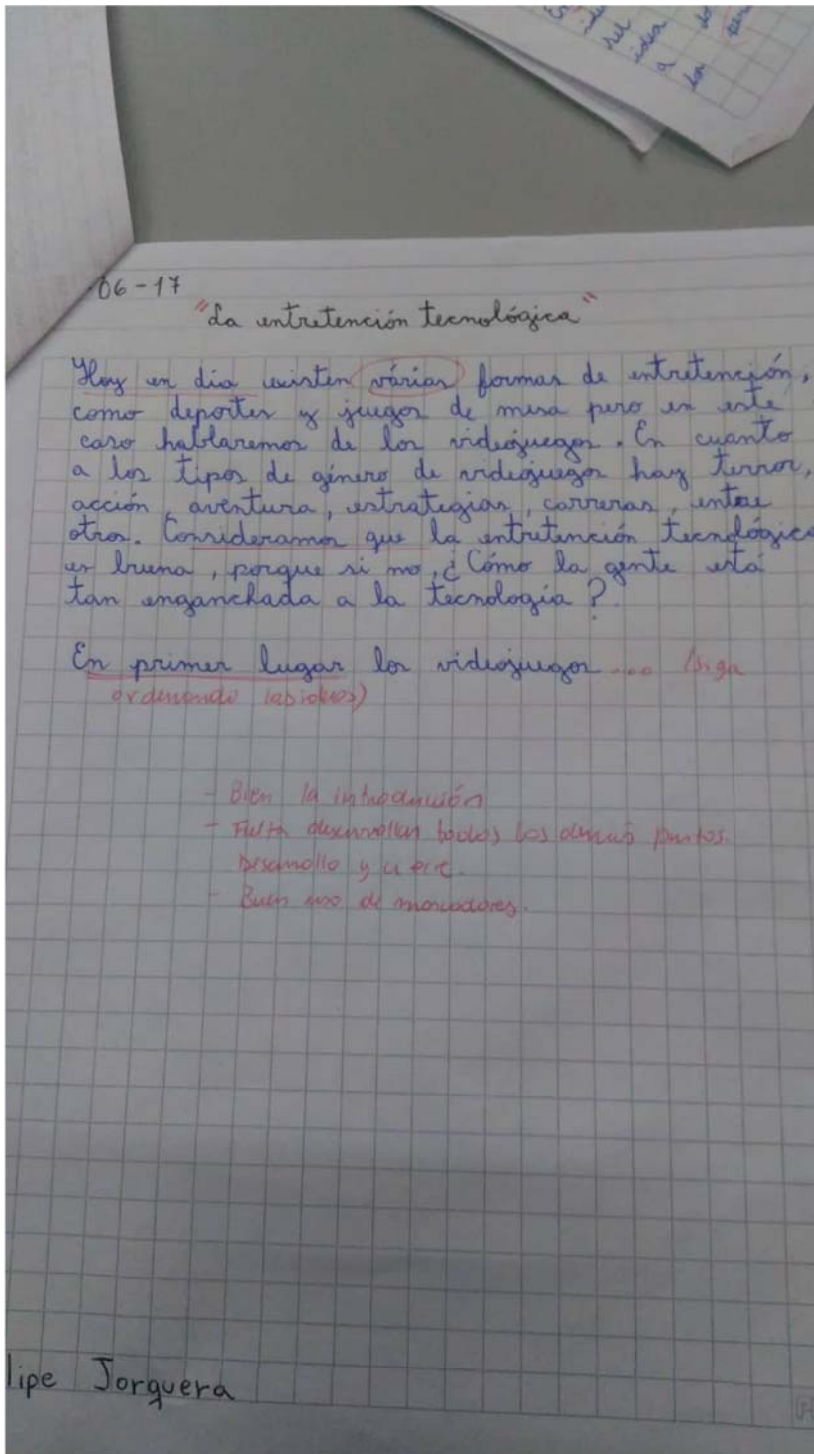 06-17
"La entretención tecnológica"
Hoy en día existen várias formas de entretención,
como deportes y juegos de mesa pero en este
caso hablaremos de los videojuegos. En cuanto
a los tipos de género de videojuegos hay terror,
acción, aventura, estrategias, carreras, entre
otros. Consideramos que la entretención tecnológica
es buena, porque si no, ¿Cómo la gente está
tan enganchada a la tecnología?
En primer lugar los videojuegos ... (siga
ordenando las ideas)
- Bien la introducción
- Falta desarrollar todos los demás puntos.
Desarrollo y cierre.
- Buen uso de marcadores.
lipe Jorquera